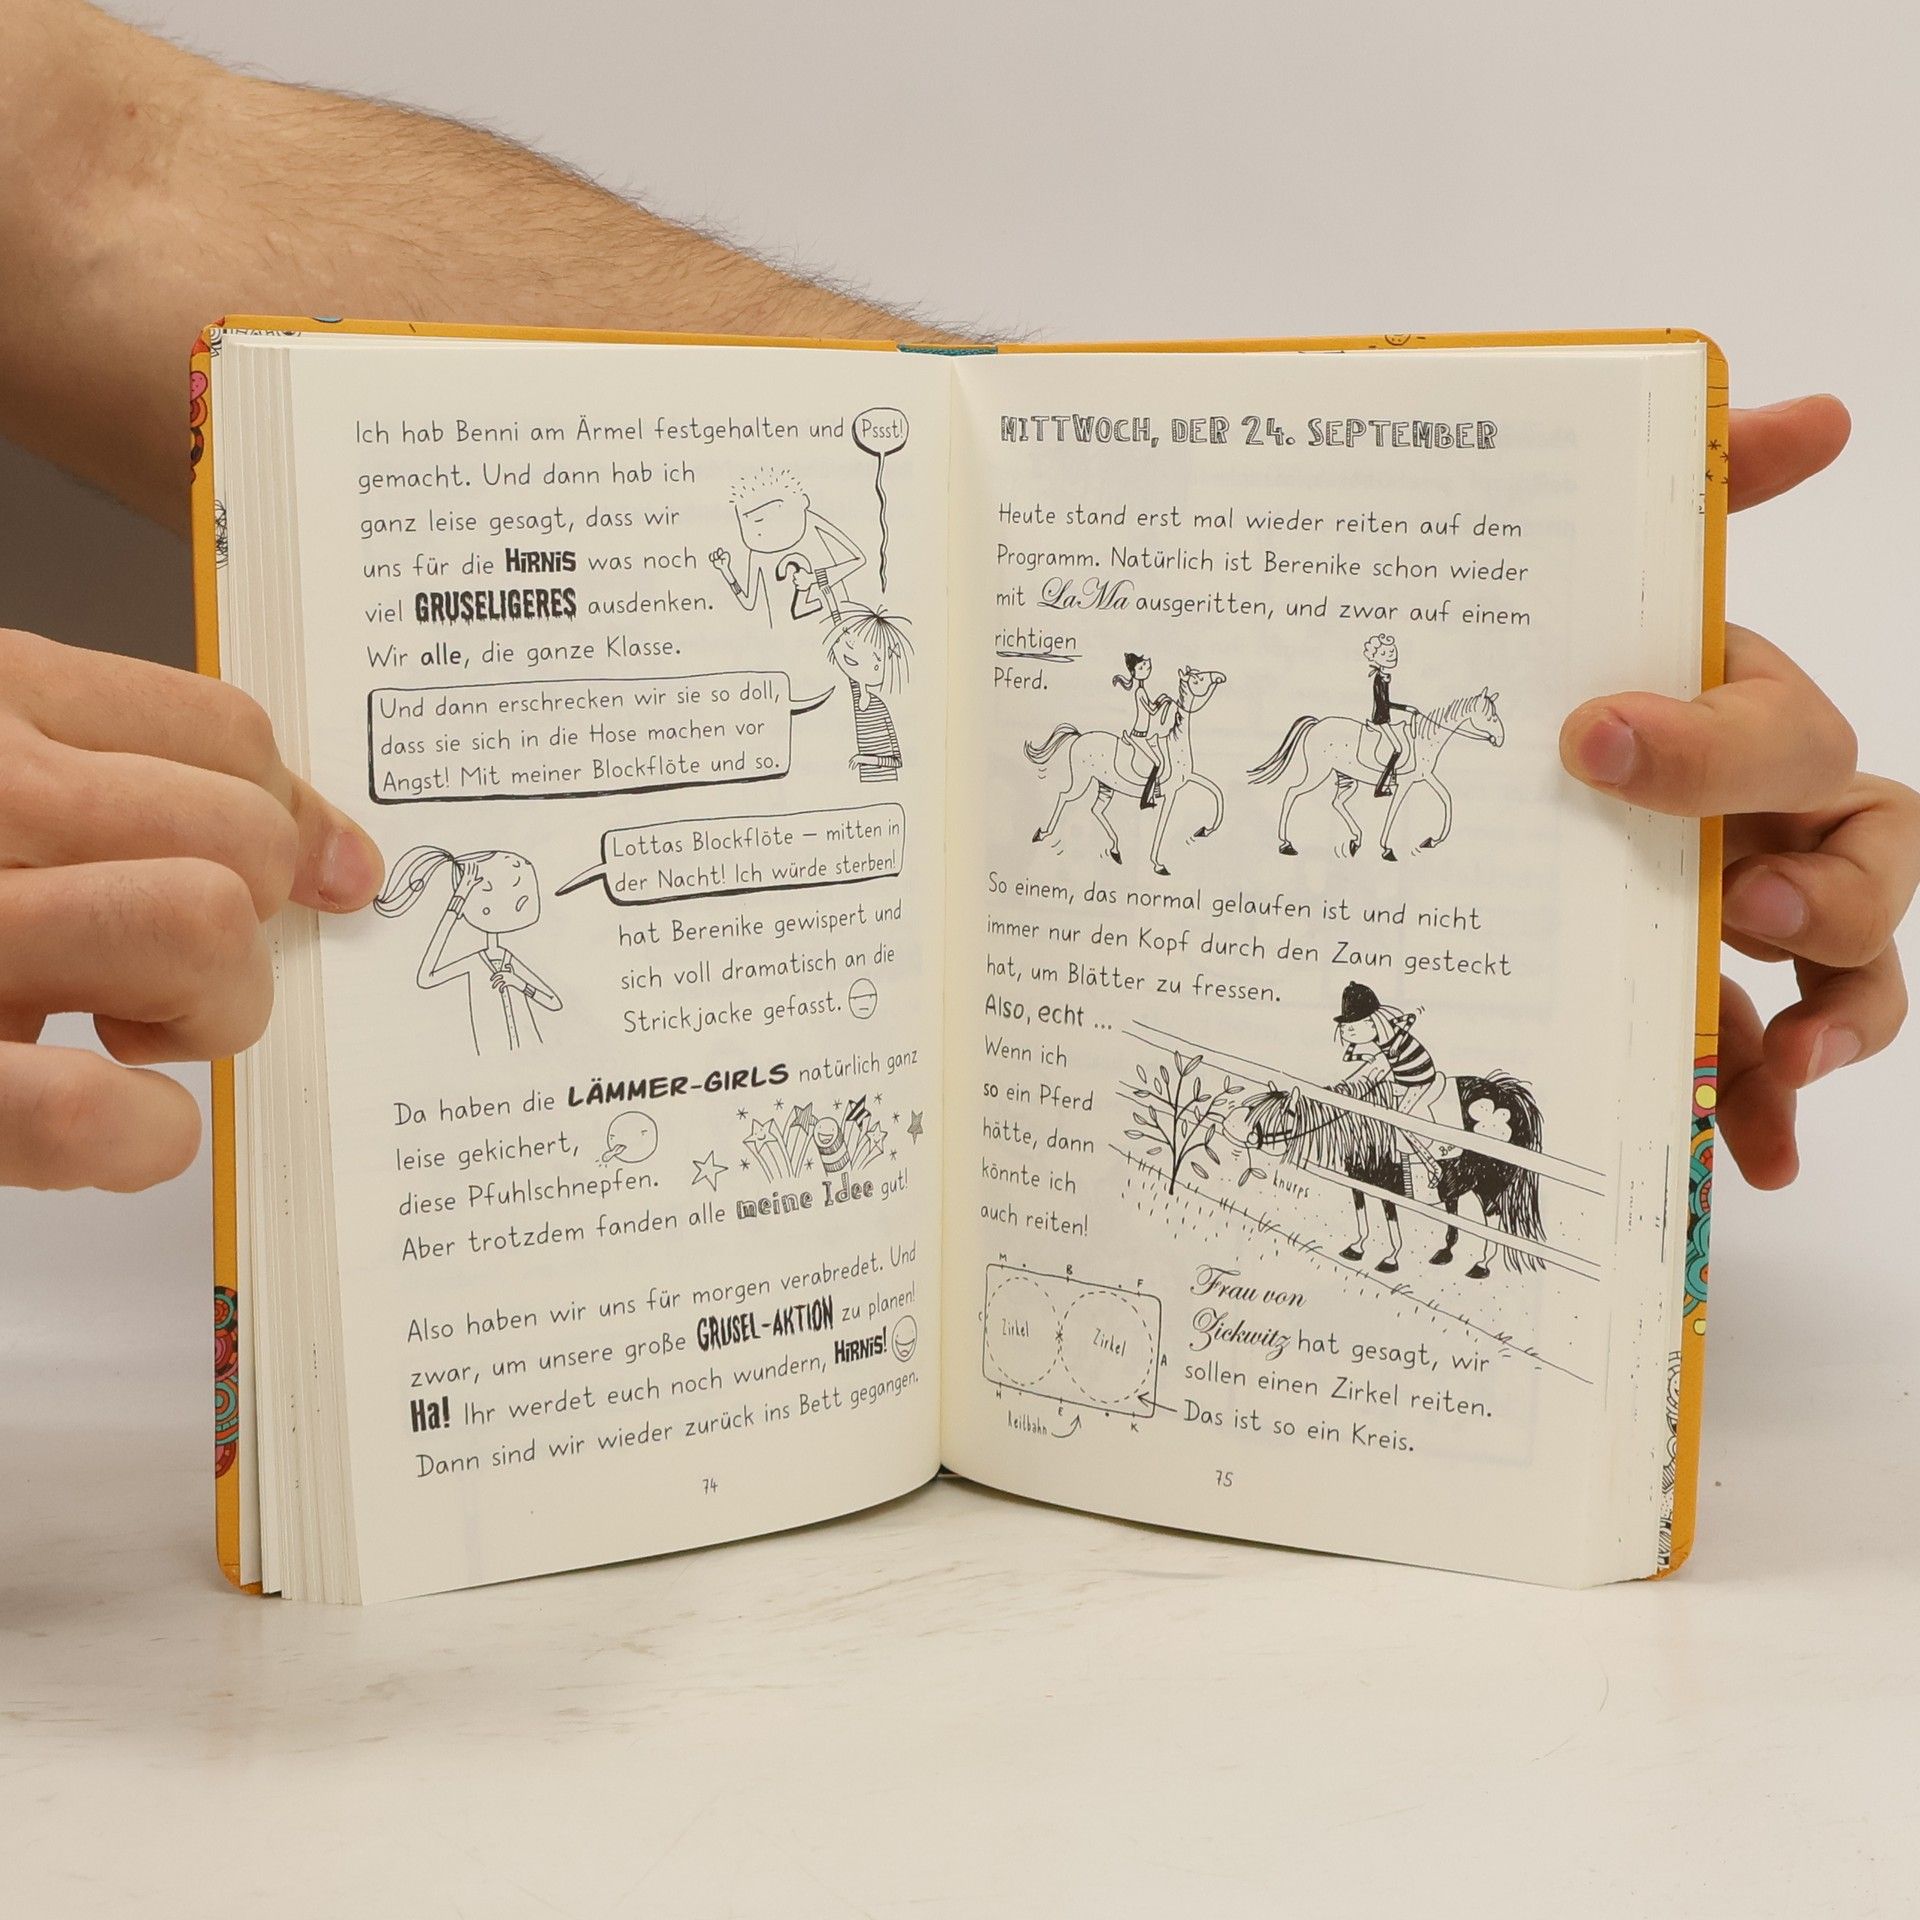 Ich hab Benni am Ärmel festgehalten und Pssst!
gemacht. Und dann hab ich
ganz leise gesagt, dass wir
uns für die HiRNiS was noch
viel GRUSELIGERES ausdenken.
Wir alle, die ganze Klasse.
Und dann erschrecken wir sie so doll,
dass sie sich in die Hose machen vor
Angst! Mit meiner Blockflöte und so.
Lottas Blockflöte – mitten in
der Nacht! Ich würde sterben!
hat Berenike gewispert und
sich voll dramatisch an die
Strickjacke gefasst.
Da haben die LÄMMER-GIRLS natürlich ganz
leise gekichert,
diese Pfuhlschnepfen.
Aber trotzdem fanden alle meine Idee gut!
Also haben wir uns für morgen verabredet. Und
zwar, um unsere große GRUSEL-AKTION zu planen!
Ha! Ihr werdet euch noch wundern, HiRNiS!
Dann sind wir wieder zurück ins Bett gegangen.
74
MITTWOCH, DER 24. SEPTEMBER
Heute stand erst mal wieder reiten auf dem
Programm. Natürlich ist Berenike schon wieder
mit LaMa ausgeritten, und zwar auf einem
richtigen
Pferd.
So einem, das normal gelaufen ist und nicht
immer nur den Kopf durch den Zaun gesteckt
hat, um Blätter zu fressen.
Also, echt ...
Wenn ich
so ein Pferd
hätte, dann
könnte ich
auch reiten!
knurps
M B F
C
Zirkel Zirkel
A
H E K
Reitbahn
Frau von
Zickwitz hat gesagt, wir
sollen einen Zirkel reiten.
Das ist so ein Kreis.
75